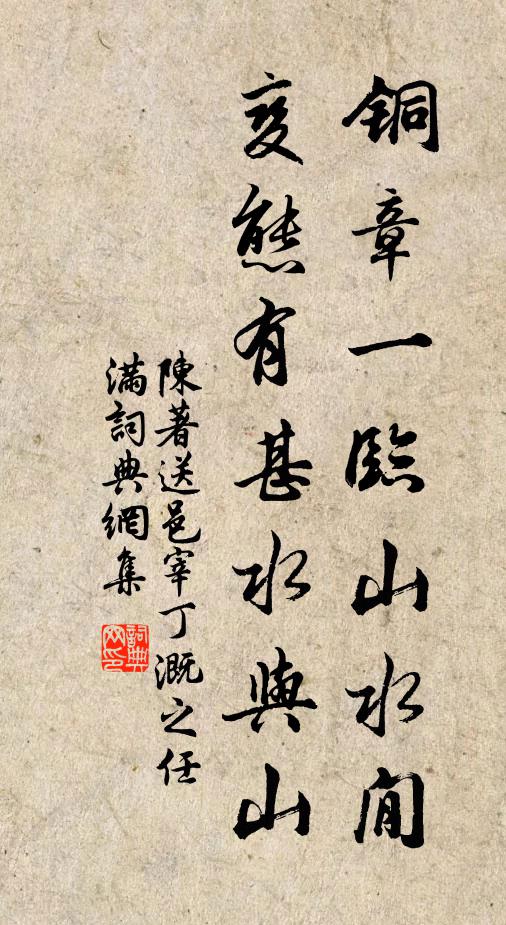 铜章一临山水间
变态有甚水与山
陳著送邑宰丁溉之任
滿詞典網集
詞典网印